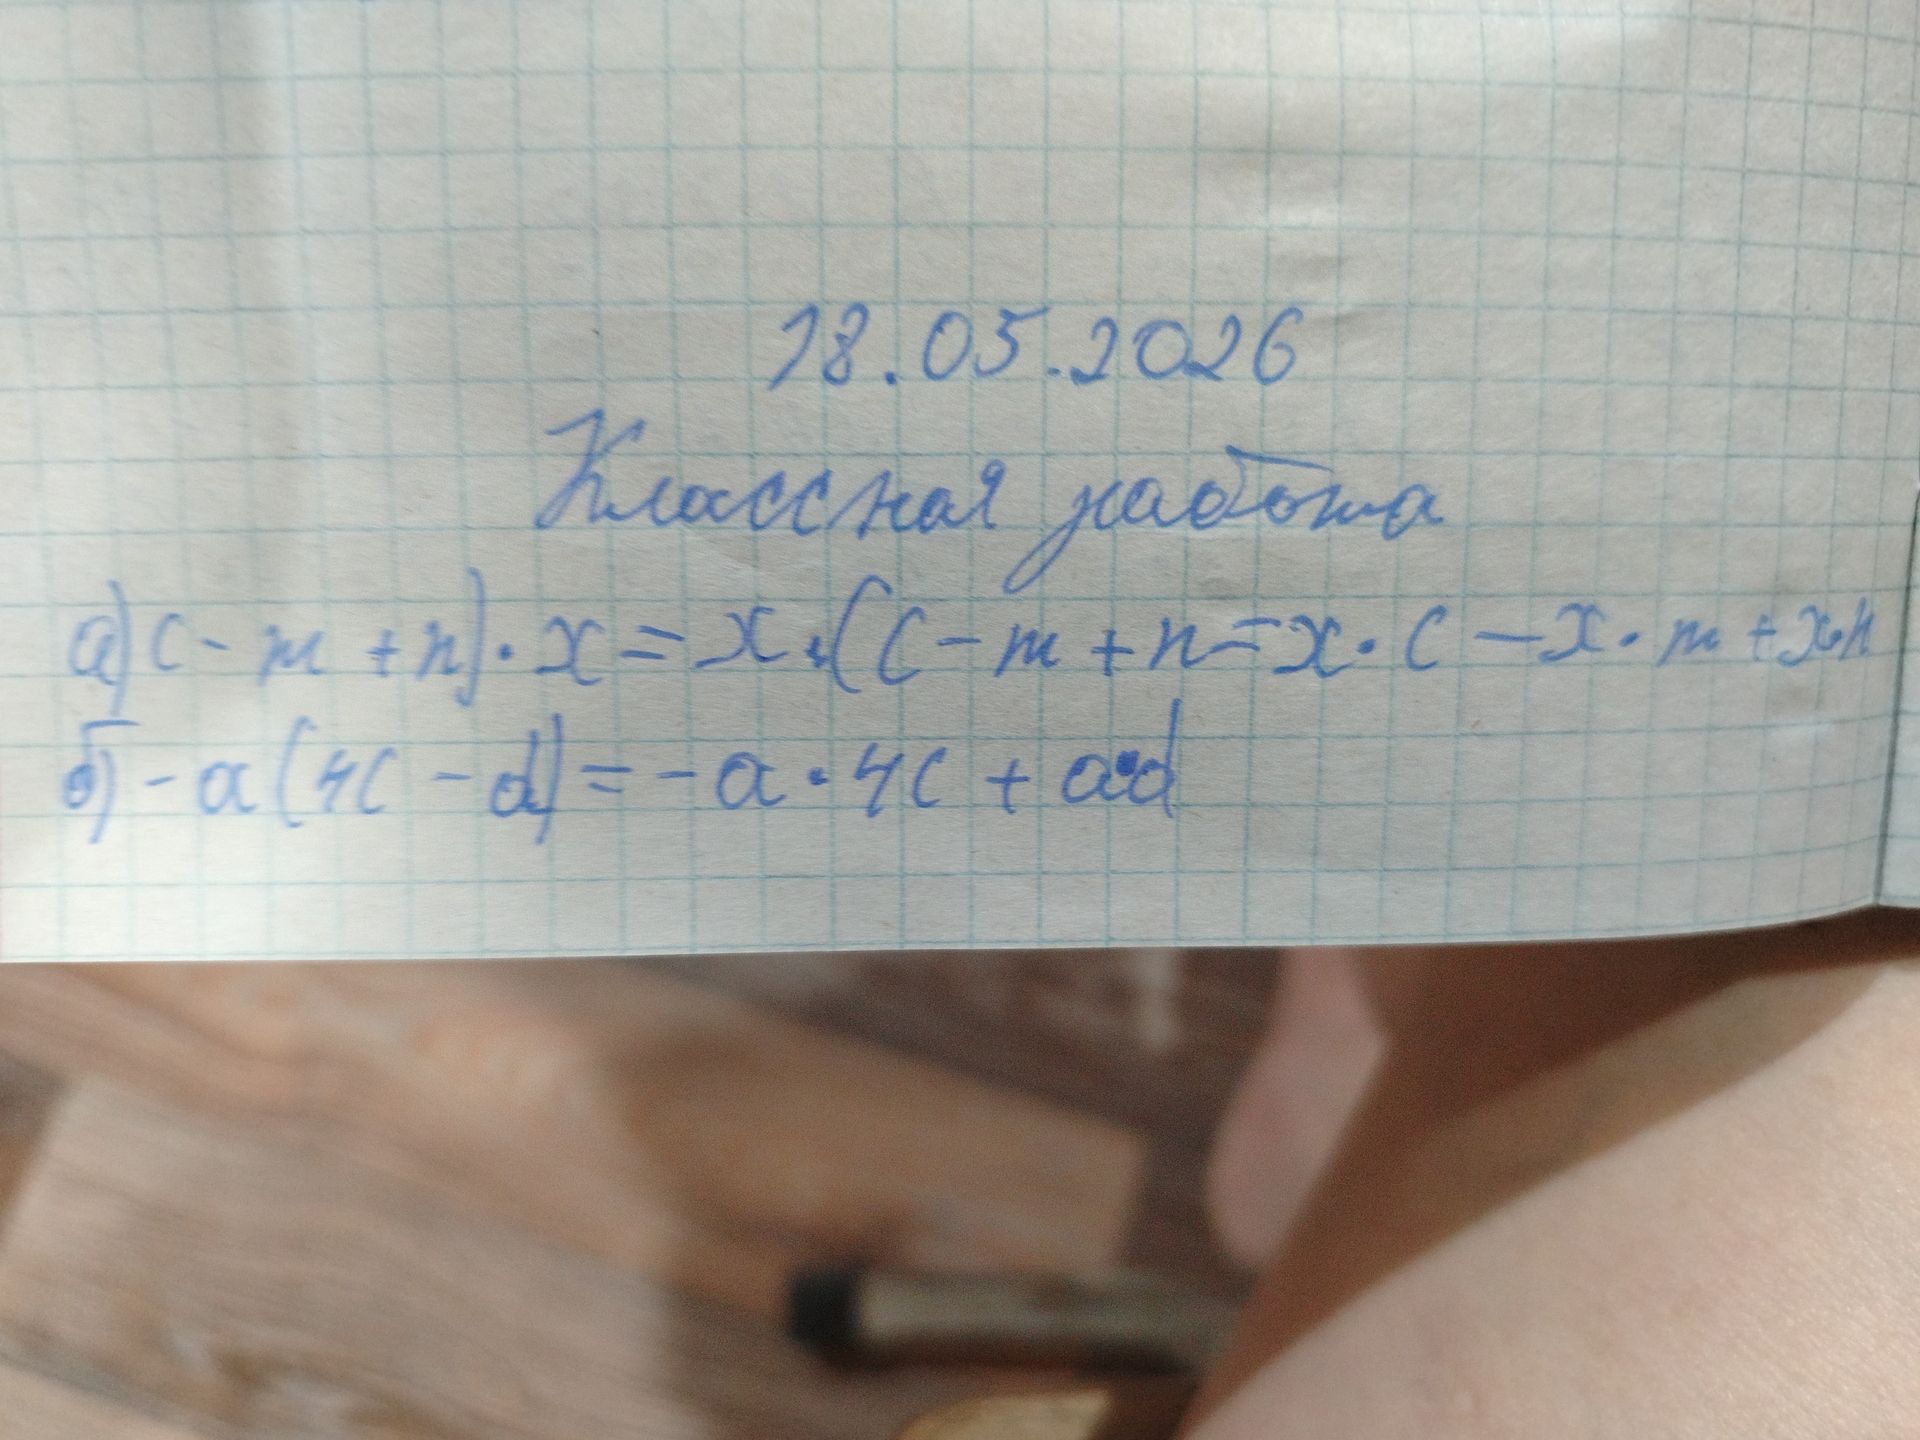 18.05.2026
Классная работа
а) c - m + n) · x = x · (c - m + n = x · c - x · m + x·n
б) - a (4c - d) = - a · 4c + a·d